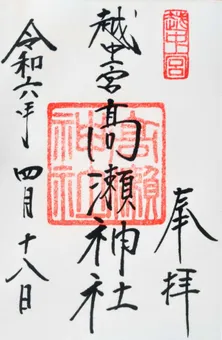 奉拝
越中宮
越中宮髙瀬神社
高瀬神社
令和六年 四月十八日